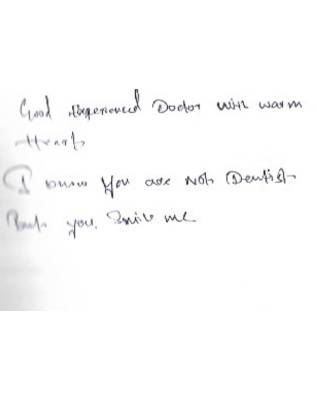 Good Experienced Doctor with warm
Heart
I know You are not Dentist
But you. Smile me